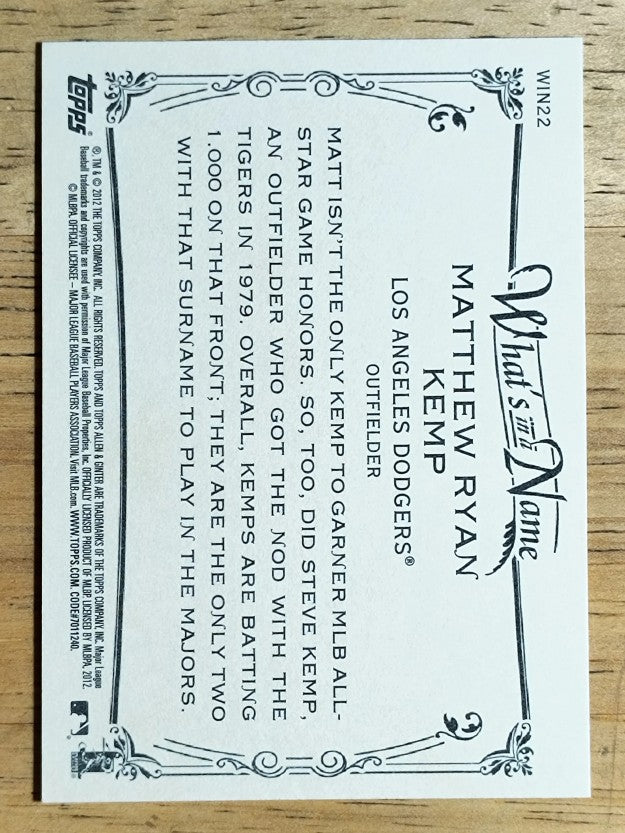 WIN22
What's in a Name
MATTHEW RYAN
KEMP
LOS ANGELES DODGERS®
OUTFIELDER
MATT ISN'T THE ONLY KEMP TO GARNER MLB ALL-
STAR GAME HONORS. SO, TOO, DID STEVE KEMP,
AN OUTFIELDER WHO GOT THE NOD WITH THE
TIGERS IN 1979. OVERALL, KEMPS ARE BATTING
1.000 ON THAT FRONT; THEY ARE THE ONLY TWO
WITH THAT SURNAME TO PLAY IN THE MAJORS.
topps®
®, TM & © 2012 THE TOPPS COMPANY, INC. ALL RIGHTS RESERVED. TOPPS AND TOPPS ALLEN & GINTER ARE TRADEMARKS OF THE TOPPS COMPANY, INC. Major League
Baseball trademarks and copyrights are used with permission of Major League Baseball Properties, Inc. OFFICIALLY LICENSED PRODUCT OF MLBP. LICENSED BY MLBPA, 2012.
© MLBPA. OFFICIAL LICENSEE – MAJOR LEAGUE BASEBALL PLAYERS ASSOCIATION. Visit MLB.com. WWW.TOPPS.COM. CODE#7011240.